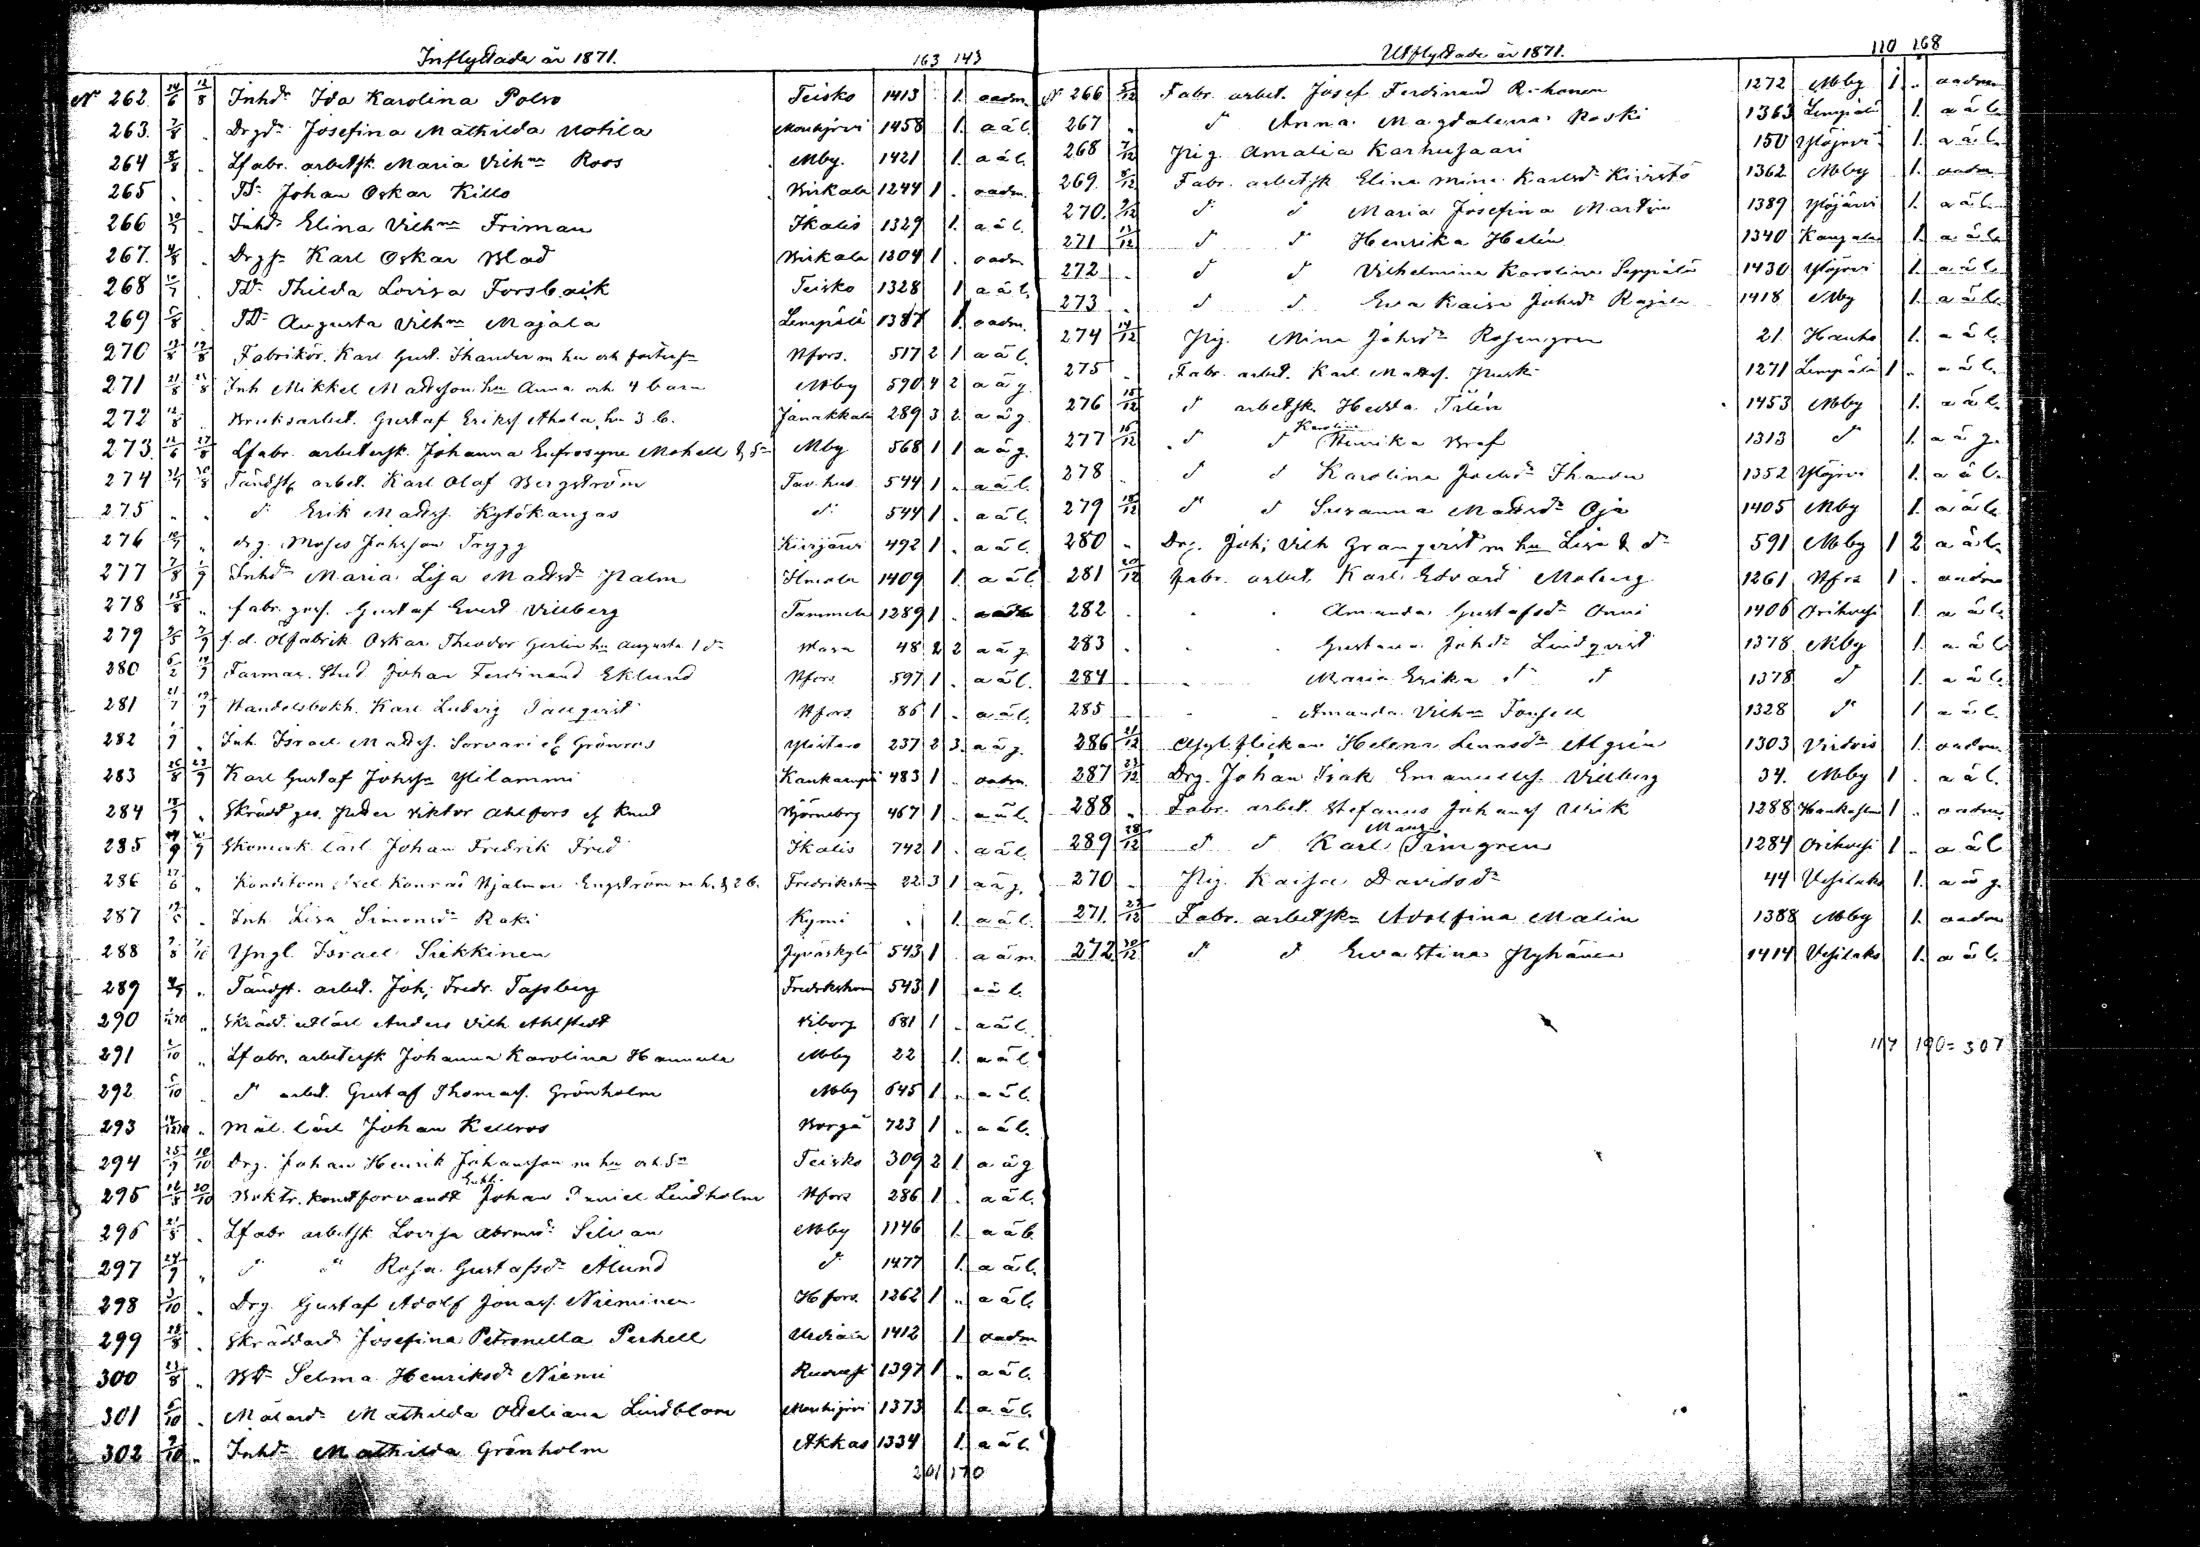 Inflyttade år 1871. 163 143
N 262 14/6 12/8 Inhdr Ida Karolina Polso Teisko 1413 1. oadm.
263. 7/8 . Drgdr Josefina Mathilda Kotila Mouhijrvi 1458 1. a ä l.
264 8/8 . Lfabr. arbetsk. Maria Vilhna Roos Mby. 1421 1. a ä l.
265 . . Dr Johan Oskar Killo Birkala 1244 1 . oadm.
266 . Inhdr Elina Vilhna Friman Ikalis 1329 1. a ä l.
267. 4/8 . Drgs Karl Oskar Blad Birkala 1204 1 . oadm.
268 . Dr Thilda Lovisa Forsbaik Teisko 1328 1 a ä l.
269 . Dr Augusta Vilhna Majala Lempälä 1387 1. oadm.
270 12/8 Fabrikör. Karl Gust. Ihander m hu och Nfors. 517 2 1 a ä l.
271 21/8 Inh Mikkel Mattsson hu Anna och 4 barn Mby 590 4 2 a ä g.
272 12/8 . Bruksarbet. Gustaf Eriks Ahola, hu 3 b. Janakkala 289 3 2 a ä g.
273. 12/6 27/8 Lfabr. arbetersk. Johanna Eufrosyne Mby 568 1 1 a ä g.
274 Tändst arbet. Karl Olaf Bergström Tav.hus. 544 1 . a ä l.
275 . . d Erik Matts. Kytökangas d 544 1 . a ä l.
276 . drg. Moses Johnson Trygg 492 1 . a ä l.
277 7/8 1/9 Inhdr Maria Lisa Mattsdr Palm Ilmola 1409 1. a ä l.
278 15/8 . fabr. ges. Gustaf Evert Villberg Tammela 1289 1 . oadm
279 f. d. Ölfabrik. Oskar Theodor hu Augusta 1 dr Vasa 48 2 2 a ä g.
280 Farmac. Stud. Johan Ferdinand Eklund Nfors 597 1 . a ä l.
281 Handelsbokh. Karl Ludvig Tallqvist Nfors. 86 1 . a ä l.
282 . Inh. Israel Matts. Sorvari Ylistaro 237 2 3. a ä g.
283 26/8 23/9 Karl Gustaf Johss Ylilammi 483 1 . oadm.
284 . Skrädd. ges. Peter Viktor Ahlfors Björneborg 467 1 . a ä l.
285 Skomak. lärl Johan Fredrik Fred Ikalis 742 1 . a ä l.
286 . Konditorn Axel Konrad Hjalmar Engström m h. & 2 b. Fredrikshm 22 3 1 a ä g.
287 . Inh. Lisa Simonsdr Raki Kymi . 1. a ä l.
288 Yngl. Israel Siekkinen Jyväskylä 543 1 a ä m
289 . Tändst. arbet. Joh; Fredr. Tapberg Fredrikshm 543 1 a ä l.
290 . Skrädd. utlärl Anders Vilh Ahlstedt Viborg 681 1 . a ä l.
291 2/10 . Lfabr. arbetersk Johanna Karolina Hannula Mby 22 1. a ä l.
292 . d arbet. Gustaf Thomas. Grönholm Mby 645 1 . a ä l.
293 . Mål. lärl Johan Kellros Borgå 723 1 . a ä l.
294 25/9 10/10 Drg. Johan Henrik Johansson m hu och dr Teisko 309 2 1 a ä g
295 20/10 Boktr. konstförvandt Johan Lindholm Nfors 286 1 . a ä l.
296 . Lfabr arbetsk Lovisa Abrmsdr Silvan Mby 1146 1. a ä l.
297 24/9 . d d Rosa Gustafsdr Ålund d 1477 1. a ä l.
298 3/10 . Drg. Gustaf Adolf Jonas. Nieminen Hfors. 1262 1 . a ä l.
299 . Skräddard Josefina Petronella Perhell Urdiala 1412 1 oadm
300 . Dr Selma Henriksdr Niemi Ruovesi 1397 1 . a ä l.
301 . Målardr Mathilda Lindblom Mouhijrvi 1373 1. a ä l.
302 . Inhdr Mathilda Grönholm Akkas 1334 1. a ä l.
201 170
Utflyttade år 1871. 110 168
N 266 5/12 Fabr. arbet. Josef Ferdinand 1272 Mby 1 . oadm
267 . d Anna Magdalena Koski 1363 Lempälä 1. a ä l.
268 7/12 Pig. Amalia Karhusaari 150 Ylöjrvi 1. a ä l.
269. 8/12 Fabr. arbetsk Elina Mina Karlsdr Kivistö 1362 Mby 1. oadm
270. 9/12 d d Maria Josefina Martin 1389 Ylöjärvi 1. a ä l.
271 d d Henrika Helén 1340 Kangala 1. a ä l.
272 . d d Vilhelmina Karolina Seppälä 1430 Ylöjrvi 1. a ä l.
273 . d d Eva Kaisa Johsdr Rajala 1418 Mby 1. a ä l.
274 14/12 Pig. Mina Johsdr Rosengren 21. Hauho 1. a ä l.
275 . Fabr. arbet. Karl Matts. 1271 Lempälä 1 . a ä l.
276 15/12 d arbetsk. Hedda 1453 Mby 1. a ä l.
277 16/12 d d Karolina Henrika Graf 1313 d 1. a ä g.
278 . d d Karolina Ihander 1352 Ylöjrvi 1. a ä l.
279 18/12 d d Susanna Mattsdr Oja 1405 Mby 1. a ä l.
280 . Drg. Joh; Vilh Granqvist m hu Lisa & dr 591 Mby 1 2 a ä l.
281 20/12 Fabr. arbet. Karl Edvard Moberg 1261 Nfrs 1 . oadm
282 . . . Amanda Gustafsdr Onni 1406 Orihvesi 1. a ä l.
283 . . . Gustava Johdr Lindqvist 1378 Mby 1. a ä l.
284 . . Maria Erika d d 1378 d 1. a ä l.
285 . . Amanda Vilhna Forsell 1328 d 1 a ä l.
286 21/12 Asylflickan Helena Lennsdr Algrén 1303 Virdois 1. oadm
287 23/12 Drg. Johan Isak Emanuels. Villberg 34. Mby 1 . a ä l.
288 . Fabr. arbet. Stefanus Johans Ulrik 1288 Hankasmi 1 . oadm
289 28/12 d d Karl Magn. Frimgren 1284 Orihvesi 1 . a ä l
270 . Pig. Kaisa Davidsdr 44 Vesilaks 1. a ä g.
271. 29/12 Fabr. arbetsk Adolfina Malin 1388 Mby 1. oadm
272 30/12 d d Eva Stina Nyhänen 1414 Vesilaks 1. a ä l.
117 190 = 307